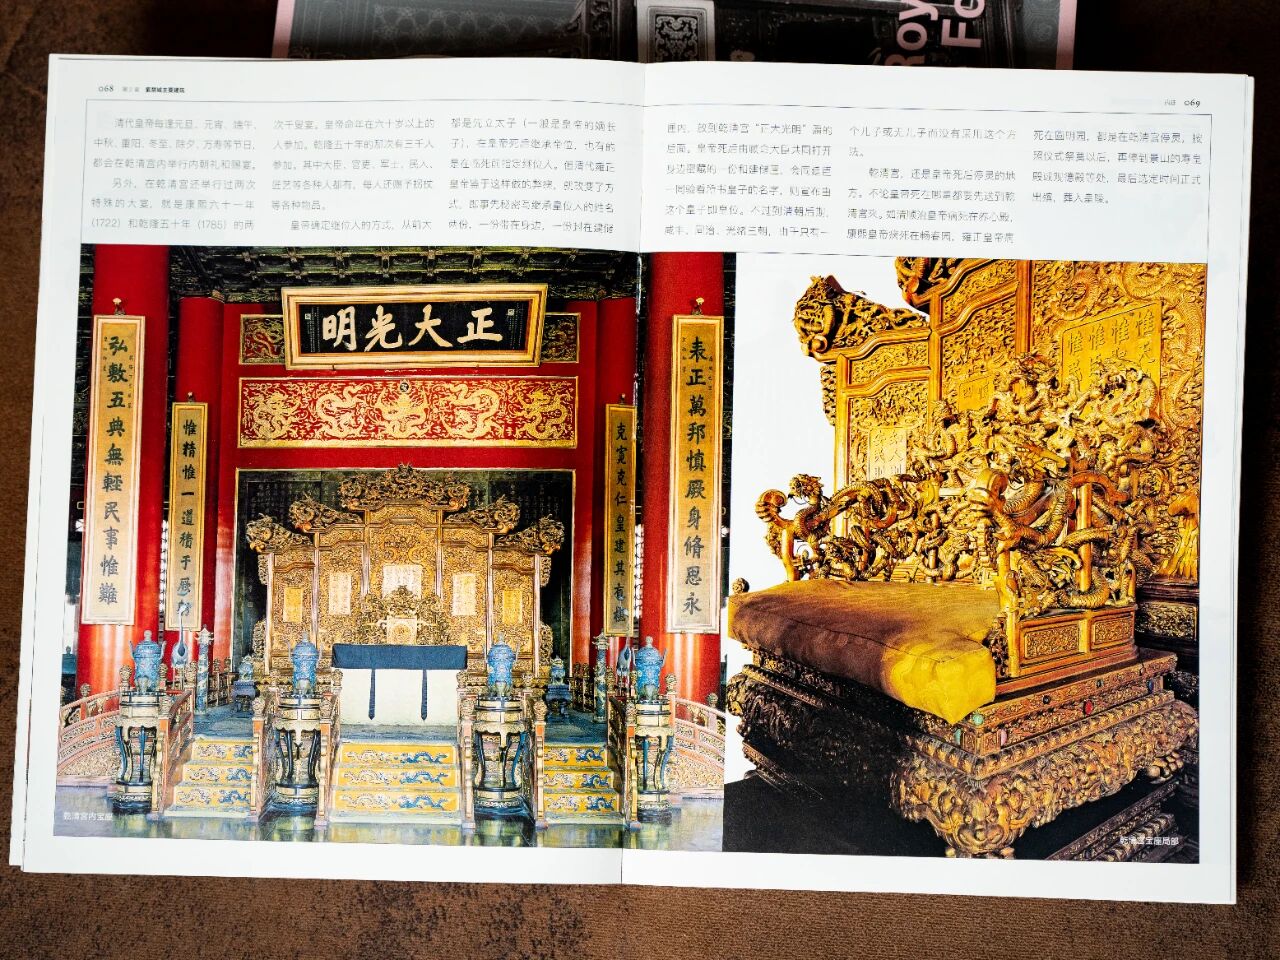 Roy
Fo
068 第三章 紫禁城主要建筑
清代皇帝每逢元旦、元宵、端午、
中秋、重阳、冬至、除夕、万寿等节日，
都会在乾清宫内举行内朝礼和赐宴。
另外，在乾清宫还举行过两次
特殊的大宴，就是康熙六十一年
(1722) 和乾隆五十年 (1785) 的两
次千叟宴。皇帝命年在六十岁以上的
人参加。乾隆五十年的那次有三千人
参加。其中大臣、官吏、军士、民人、
匠艺等各种人都有，每人还赐予拐杖
等各种物品。
皇帝确定继位人的方式，从前大
都是先立太子（一般是皇帝的嫡长
子），在皇帝死后继承帝位，也有的
是在临死前指定继位人。但清代雍正
皇帝鉴于这样做的弊病，就改变了方
式，即事先秘密写继承皇位人的姓名
两份，一份带在身边，一份封在建储
匣内，放到乾清宫“正大光明”匾的
后面。皇帝死后由顾命大臣共同打开
身边密藏的一份和建储匣，会同廷臣
一同验看所书皇子的名字，则宣布由
这个皇子即皇位。不过到清朝后期，
咸丰、同治、光绪三朝，由于只有一
个儿子或无儿子而没有采用这个方
法。
乾清宫，还是皇帝死后停灵的地
方。不论皇帝死在哪里都要先送到乾
清宫来。如清顺治皇帝病死在养心殿，
康熙皇帝病死在畅春园，雍正皇帝病
内廷 069
死在圆明园，都是在乾清宫停灵，按
照仪式祭奠以后，再停到景山的寿皇
殿或观德殿等处，最后选定时间正式
出殡，葬入皇陵。
明光大正
弘敷五典無輕民事惟難
惟精惟一道積于厥躬
克寬克仁皇建其有極
表正萬邦慎厥身脩思永
乾清宫内宝座
乾清宫宝座局部